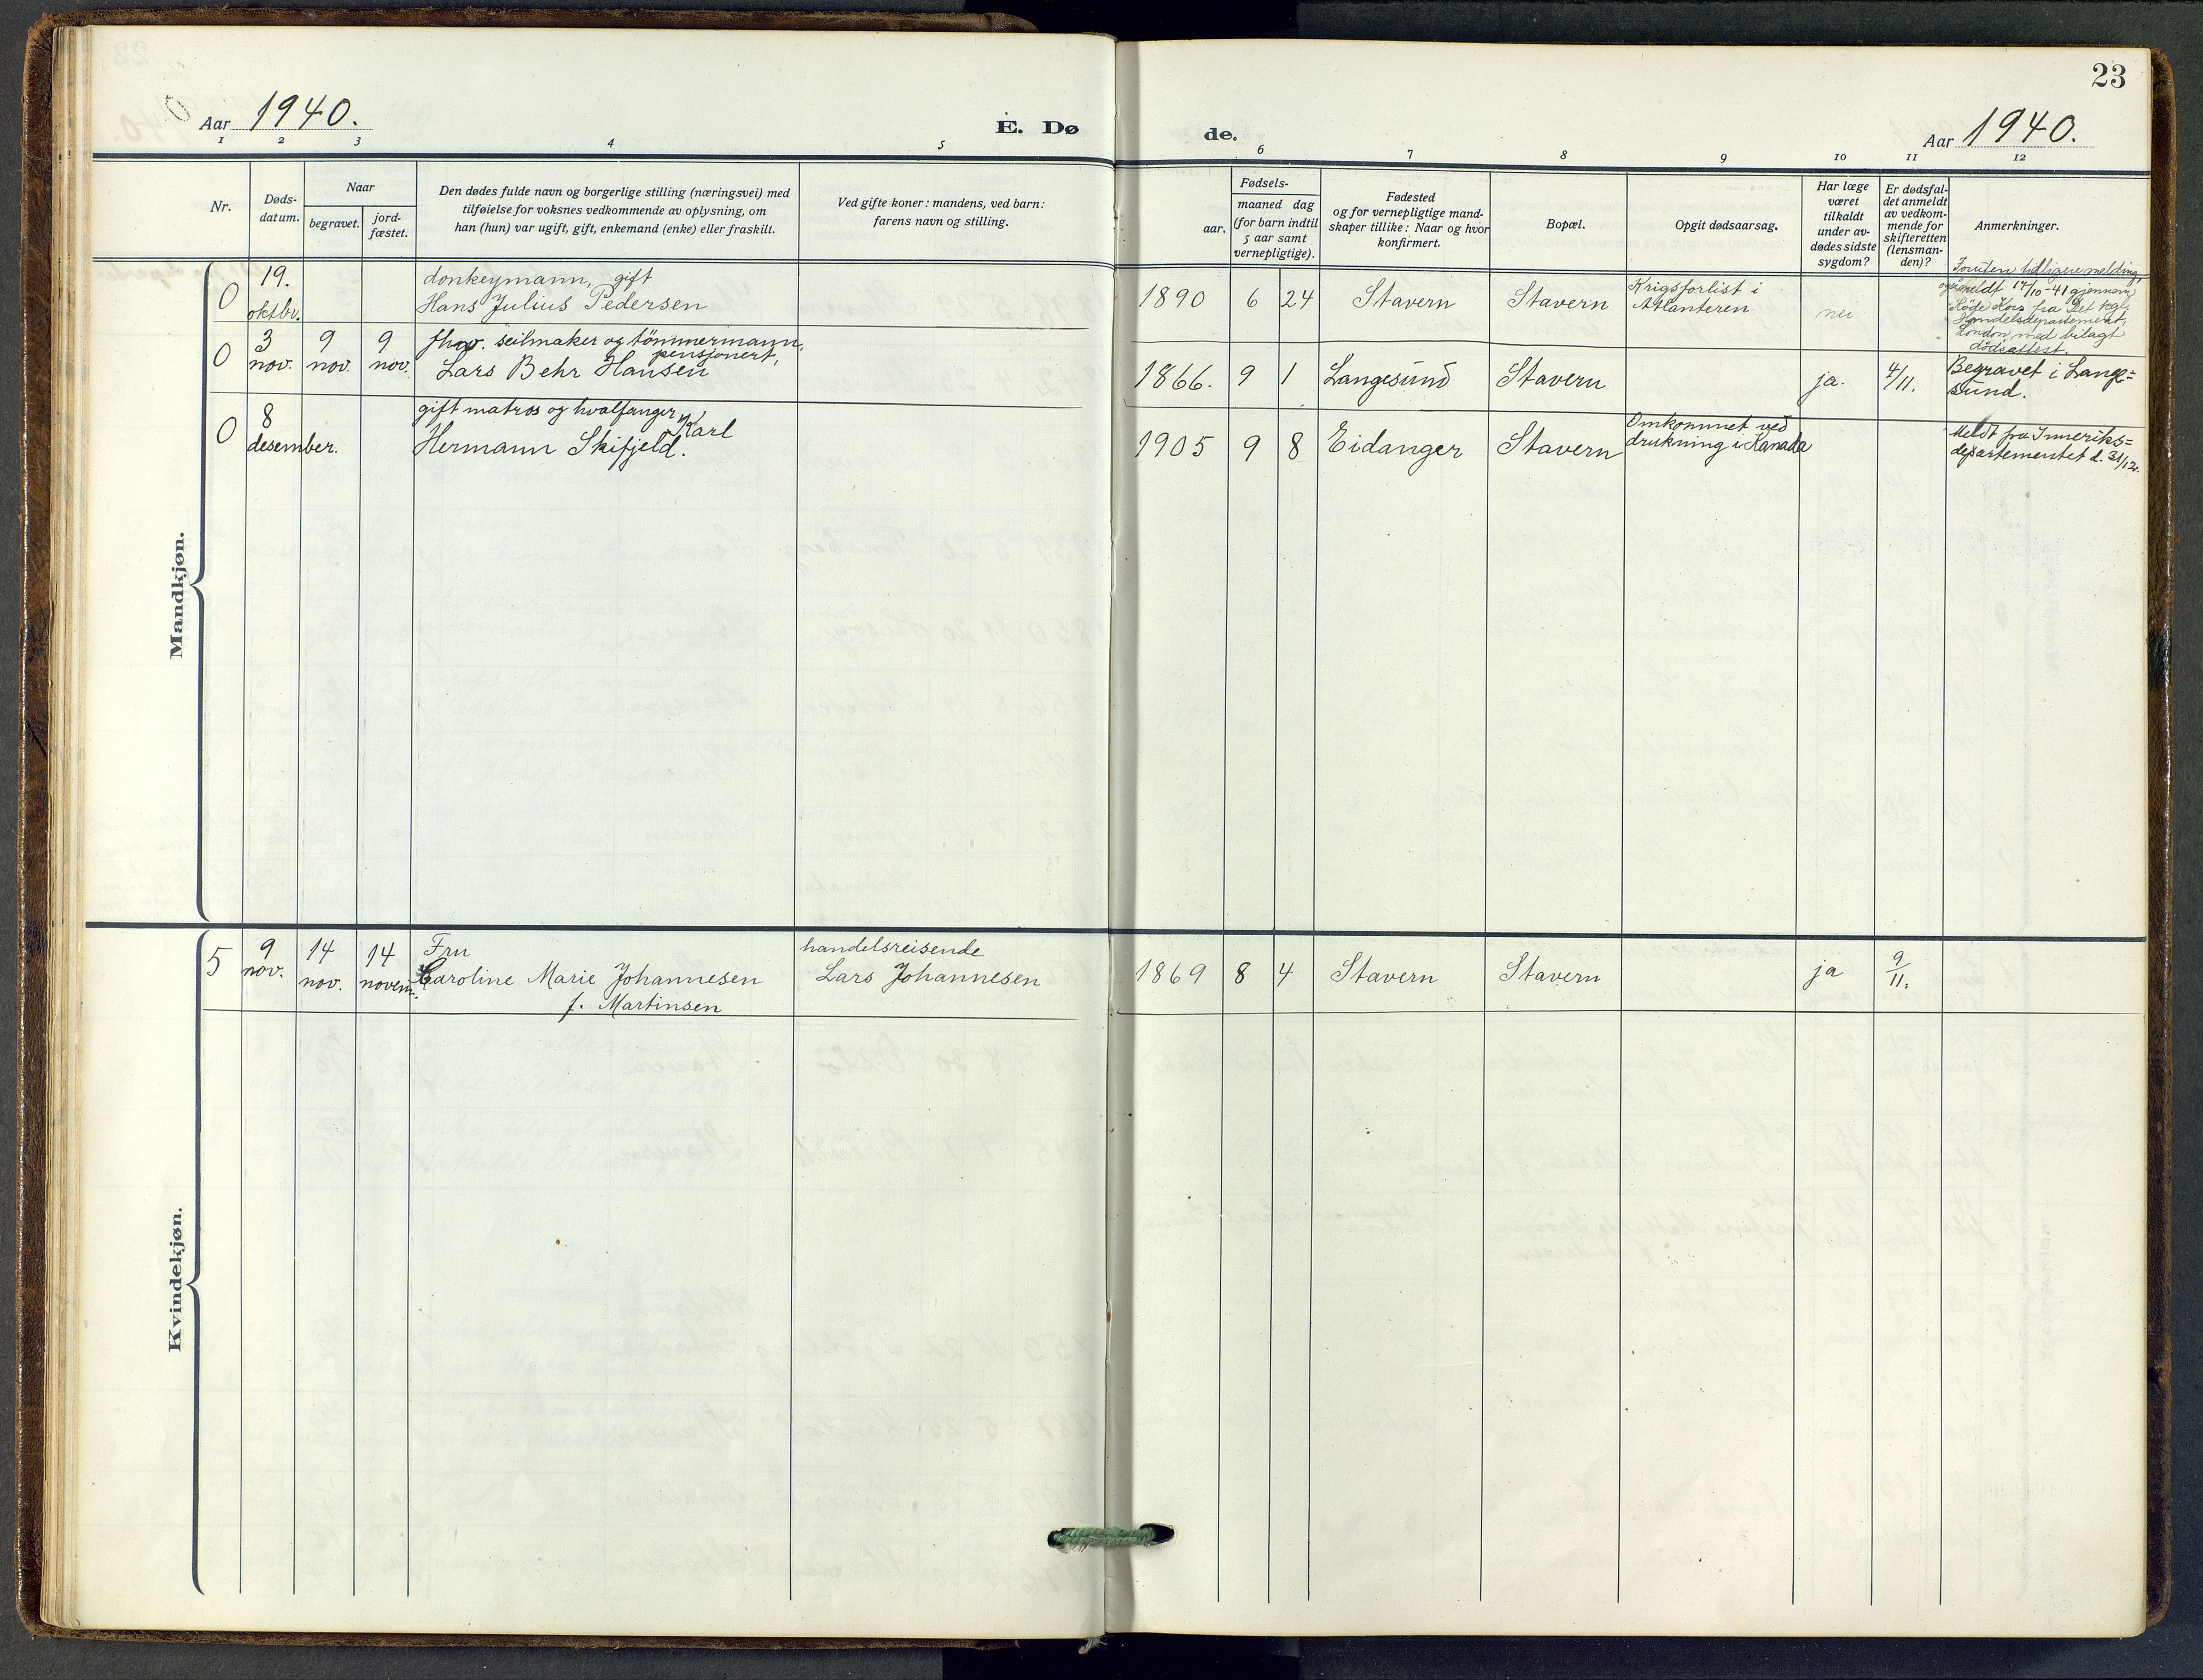 23
Aar 1940.
E. Dø
de.
Aar 1940.
1 2 3 4 5 6 7 8 9 10 11 12
Nr.
Døds-
datum.
Naar
begravet.
jord-
fæstet.
Den dødes fulde navn og borgerlige stilling (næringsvei) med
tilføielse for voksnes vedkommende av oplysning, om
han (hun) var ugift, gift, enkemand (enke) eller fraskilt.
Ved gifte koner: mandens, ved barn:
farens navn og stilling.
Fødsels-
aar.
maaned dag
(for barn indtil
5 aar samt
vernepligtige).
Fødested
og for vernepligtige mand-
skaper tillike: Naar og hvor
konfirmert.
Bopæl.
Opgit dødsaarsag.
Har læge
været
tilkaldt
under av-
dødes sidste
sygdom?
Er dødsfal-
det anmeldt
av vedkom-
mende for
skifteretten
(lensman-
den)?
Anmerkninger.
Mandkjøn.
0
19.
oktbr.
donkeymann, gift
Hans Julius Pedersen
1890 6 24 Stavern Stavern
Krigsforlist i
Atlanteren
nei
Foruten tidligere melding,
også meldt 17/10-41 gjennem
Røde Kors fra Det kgl.
Handelsdepartement,
London, med bilagt
dødsattest.
0
3
nov.
9
nov.
9
nov.
seilmaker og tömmermann,
pensjonert,
Lars Behr Hansen
1866. 9 1 Langesund Stavern
ja.
4/11.
Begravet i Lange=
sund.
0
8
desember.
gift matros og hvalfanger
Karl
Hermann Skifjeld.
1905 9 8 Eidanger Stavern
Omkommet ved
drukning i Kanada
Meldt fra Inneriks=
departementet d. 31/12.
Kvindekjøn.
5
9
nov.
14
nov.
14
novem.
Fru
Caroline Marie Johannesen
f. Martinsen
handelsreisende
Lars Johannesen
1869 8 4 Stavern Stavern
ja
9/11.